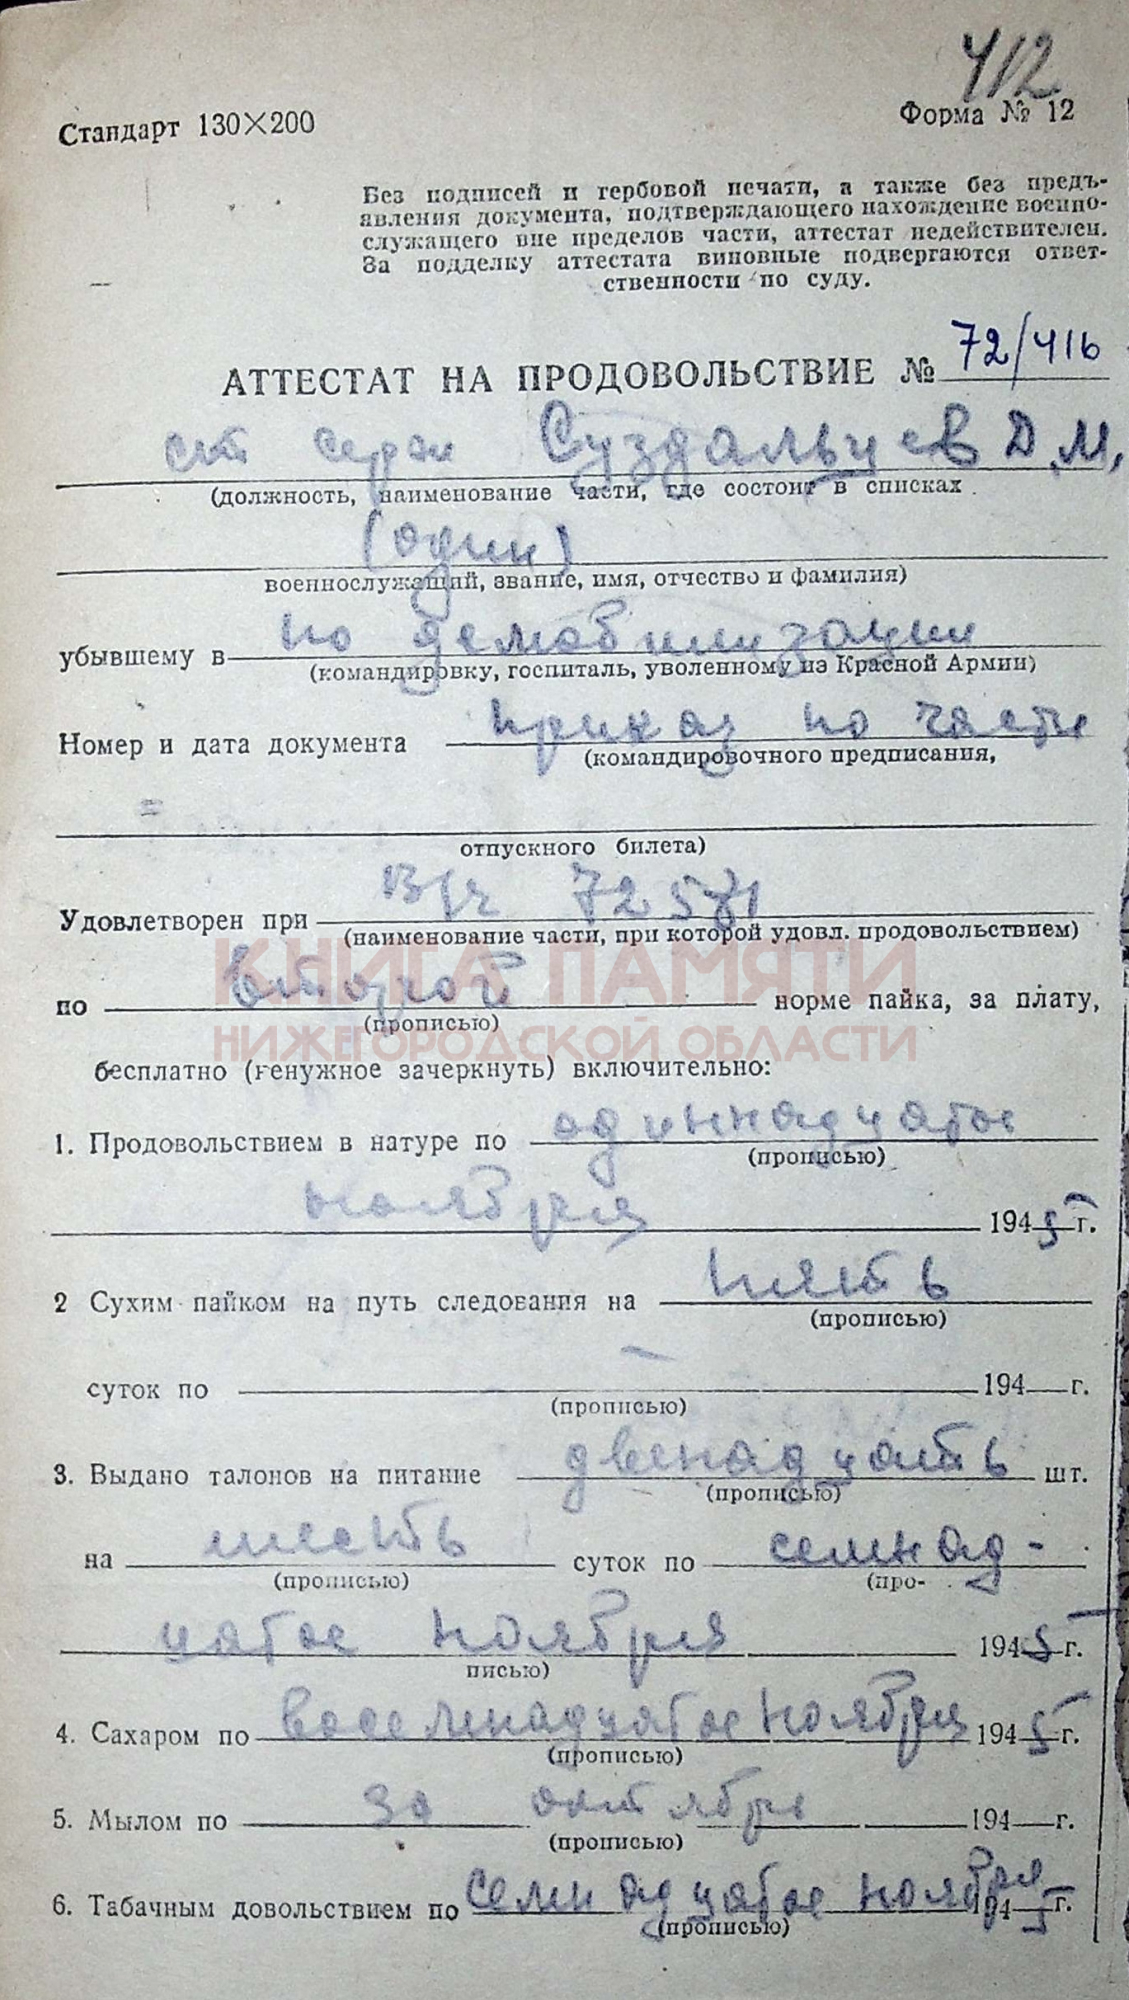 412
Стандарт 130×200
Форма № 12
Без подписей и гербовой печати, а также без предъ-
явления документа, подтверждающего нахождение военно-
служащего вне пределов части, аттестат недействителен.
За подделку аттестата виновные подвергаются ответ-
ственности по суду.
АТТЕСТАТ НА ПРОДОВОЛЬСТВИЕ № 72/416
ст серж Суздальцев Д.М.
(должность, наименование части, где состоит в списках
(один)
военнослужащий, звание, имя, отчество и фамилия)
убывшему в по демобилизации
(командировку, госпиталь, уволенному из Красной Армии)
Номер и дата документа приказ по части
(командировочного предписания,
отпускного билета)
Удовлетворен при В/ч 72571
(наименование части, при которой удовл. продовольствием)
КНИГА ПАМЯТИ
по второй норме пайка, за плату,
(прописью)
НИЖЕГОРОДСКОЙ ОБЛАСТИ
бесплатно (ненужное зачеркнуть) включительно:
1. Продовольствием в натуре по одиннадцатое
(прописью)
ноября 1945 г.
2 Сухим пайком на путь следования на пять
(прописью)
суток по — 194 г.
(прописью)
3. Выдано талонов на питание двенадцать шт.
(прописью)
на шесть суток по семнад-
(прописью) (про-
цатое ноября 1945 г.
писью)
4. Сахаром по восемнадцатое ноября 1945 г.
(прописью)
5. Мылом по за октябрь 194 г.
(прописью)
6. Табачным довольствием по семнадцатое ноября 1945 г.
(прописью)